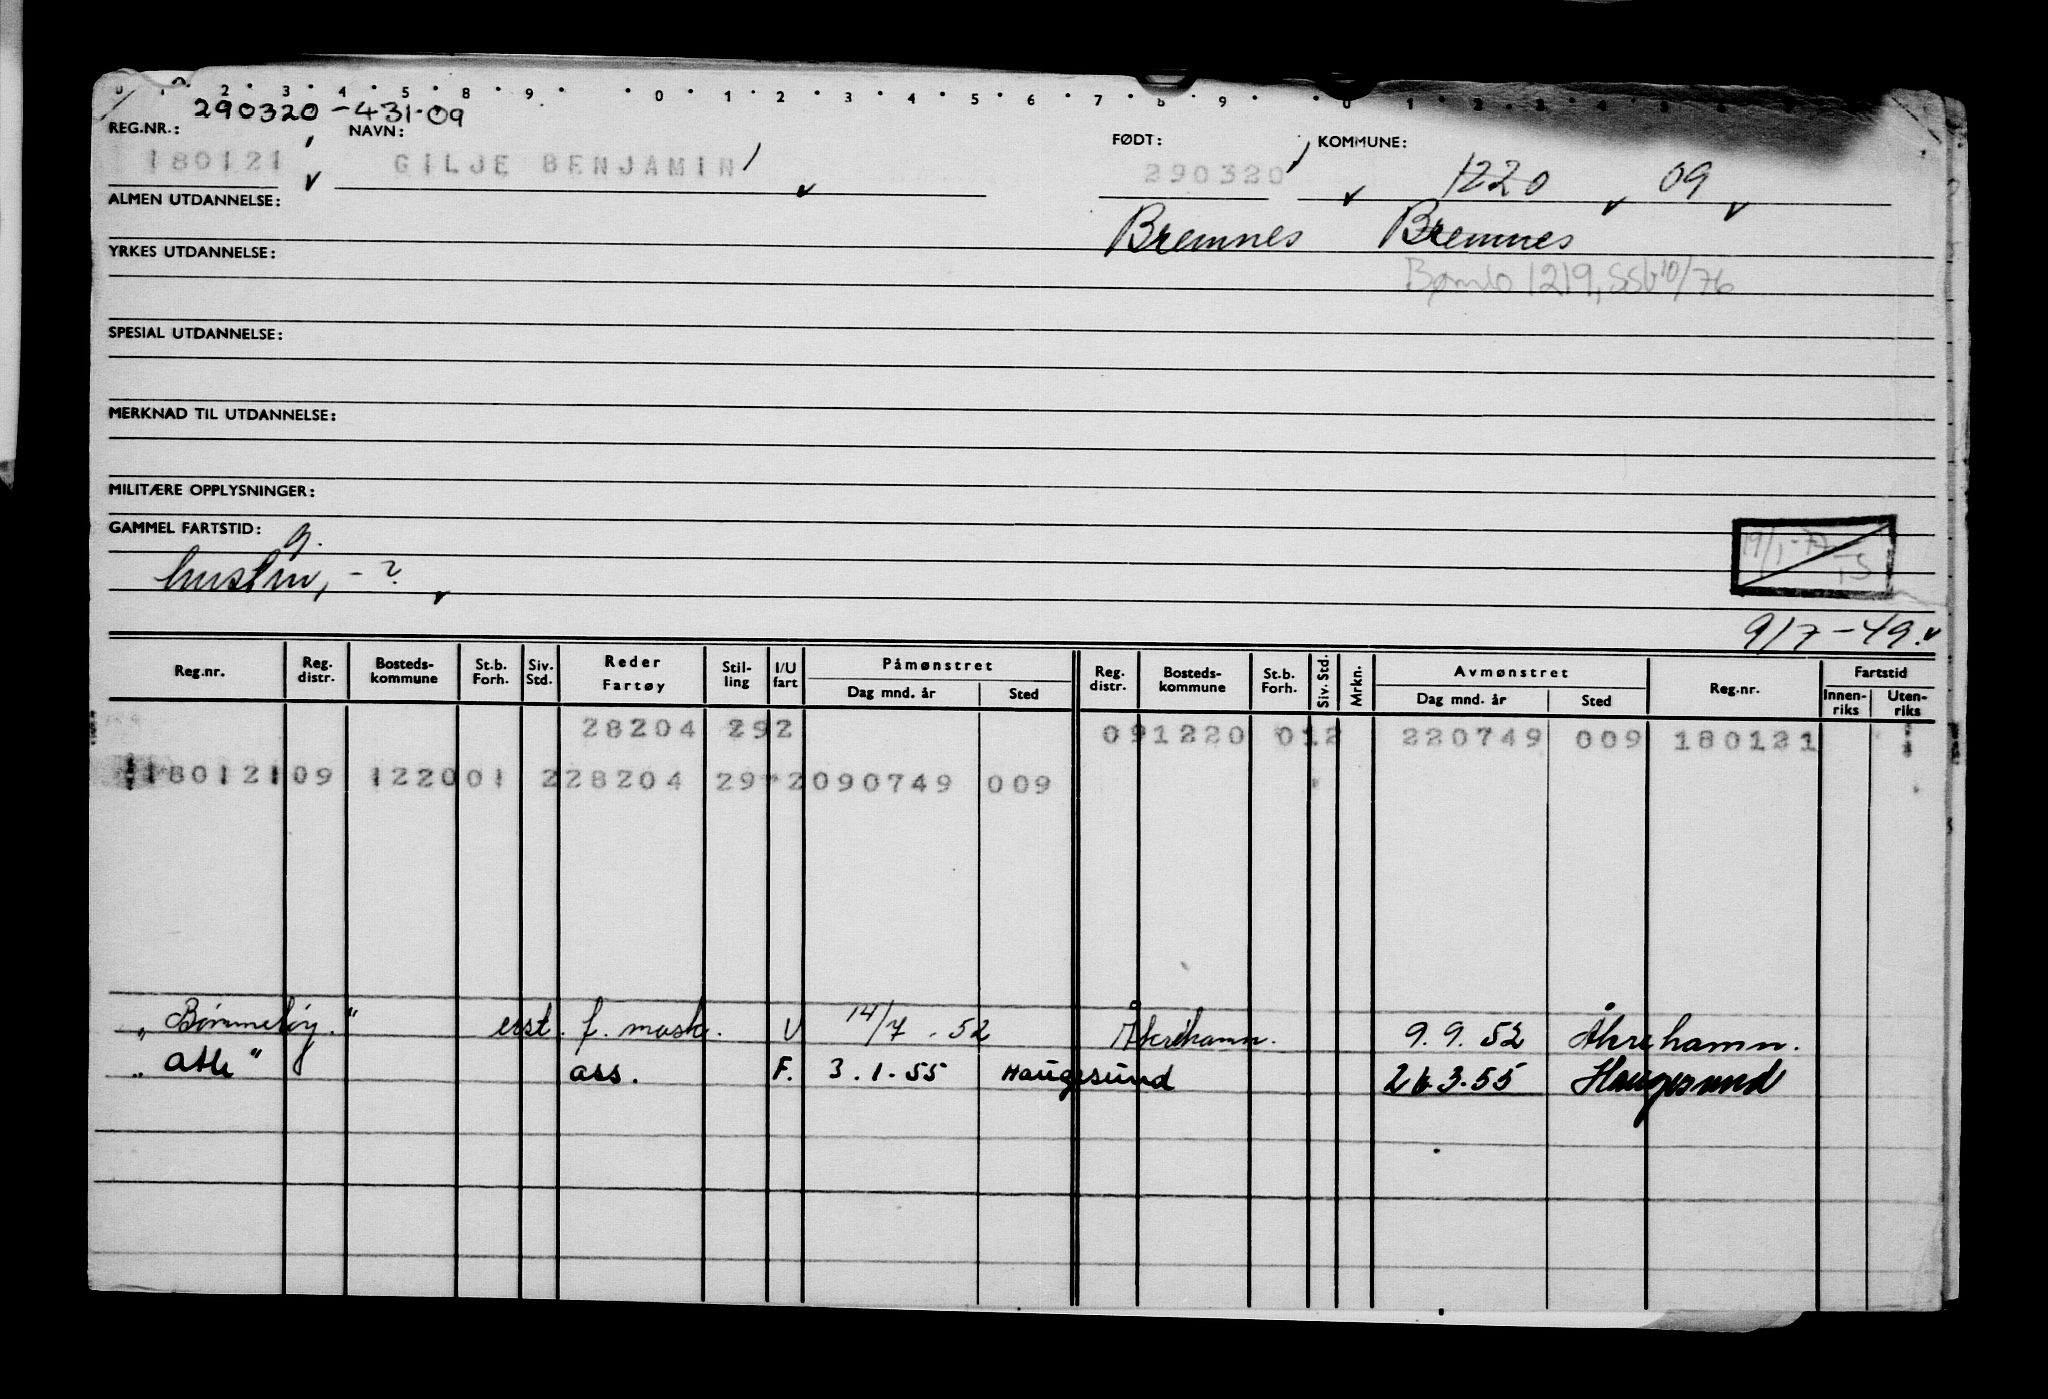 0 1 2 3 4 5 6 8 9 0 1 2 3 4 5 6 7 8 9 0 1 2 3 4 5
290320-431.09
REG.NR.: NAVN: FØDT: KOMMUNE:
180121 GILJE BENJAMIN 290320 1220 09
ALMEN UTDANNELSE: Bremnes Bremnes
YRKES UTDANNELSE: Bømlo 1219, SSb 10/76
SPESIAL UTDANNELSE:
MERKNAD TIL UTDANNELSE:
MILITÆRE OPPLYSNINGER:
GAMMEL FARTSTID: g.
19/1-77
- ?
9/7-49.
Reg.nr. Reg. distr. Bosteds-kommune St.b. Forh. Siv. Std. Reder Fartøy Stil-ling I/U fart Påmønstret Dag mnd. år Sted Reg. distr. Bosteds-kommune St.b. Forh. Siv. Std. Mrkn. Avmønstret Dag mnd. år Sted Reg.nr. Fartstid Innen-riks Uten-riks
28204 292 091220 012 220749 009 180121
180121 09 1220 01 2 28204 29 2 090749 009
"Bømmeløy." erst. f. mask. U 14/7.52 Åkrehamn. 9.9.52 Åkrehamn.
"Atle" ass. F. 3.1.55 Haugesund 26.3.55 Haugesund